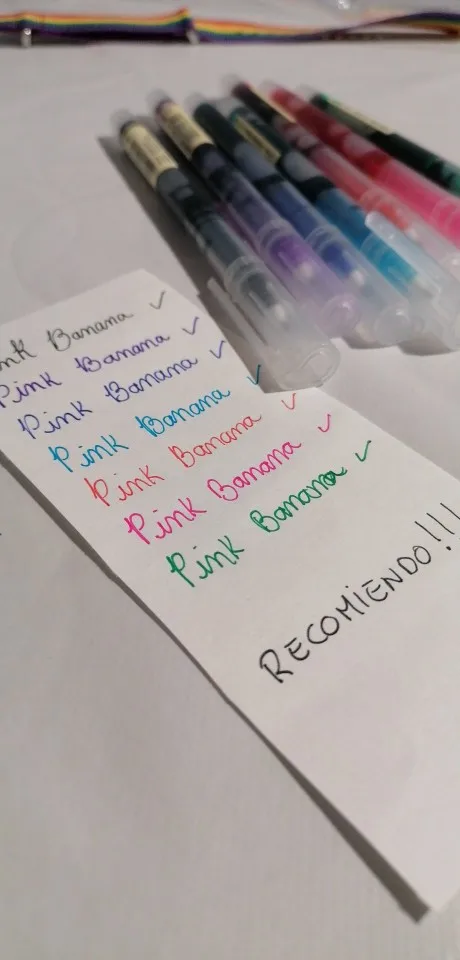 nk Banana ✓
Pink Banana ✓
Pink Banana ✓
Pink Banana ✓
Pink Banana ✓
Pink Banana ✓
Pink Banana ✓
RECOMIENDO!!!